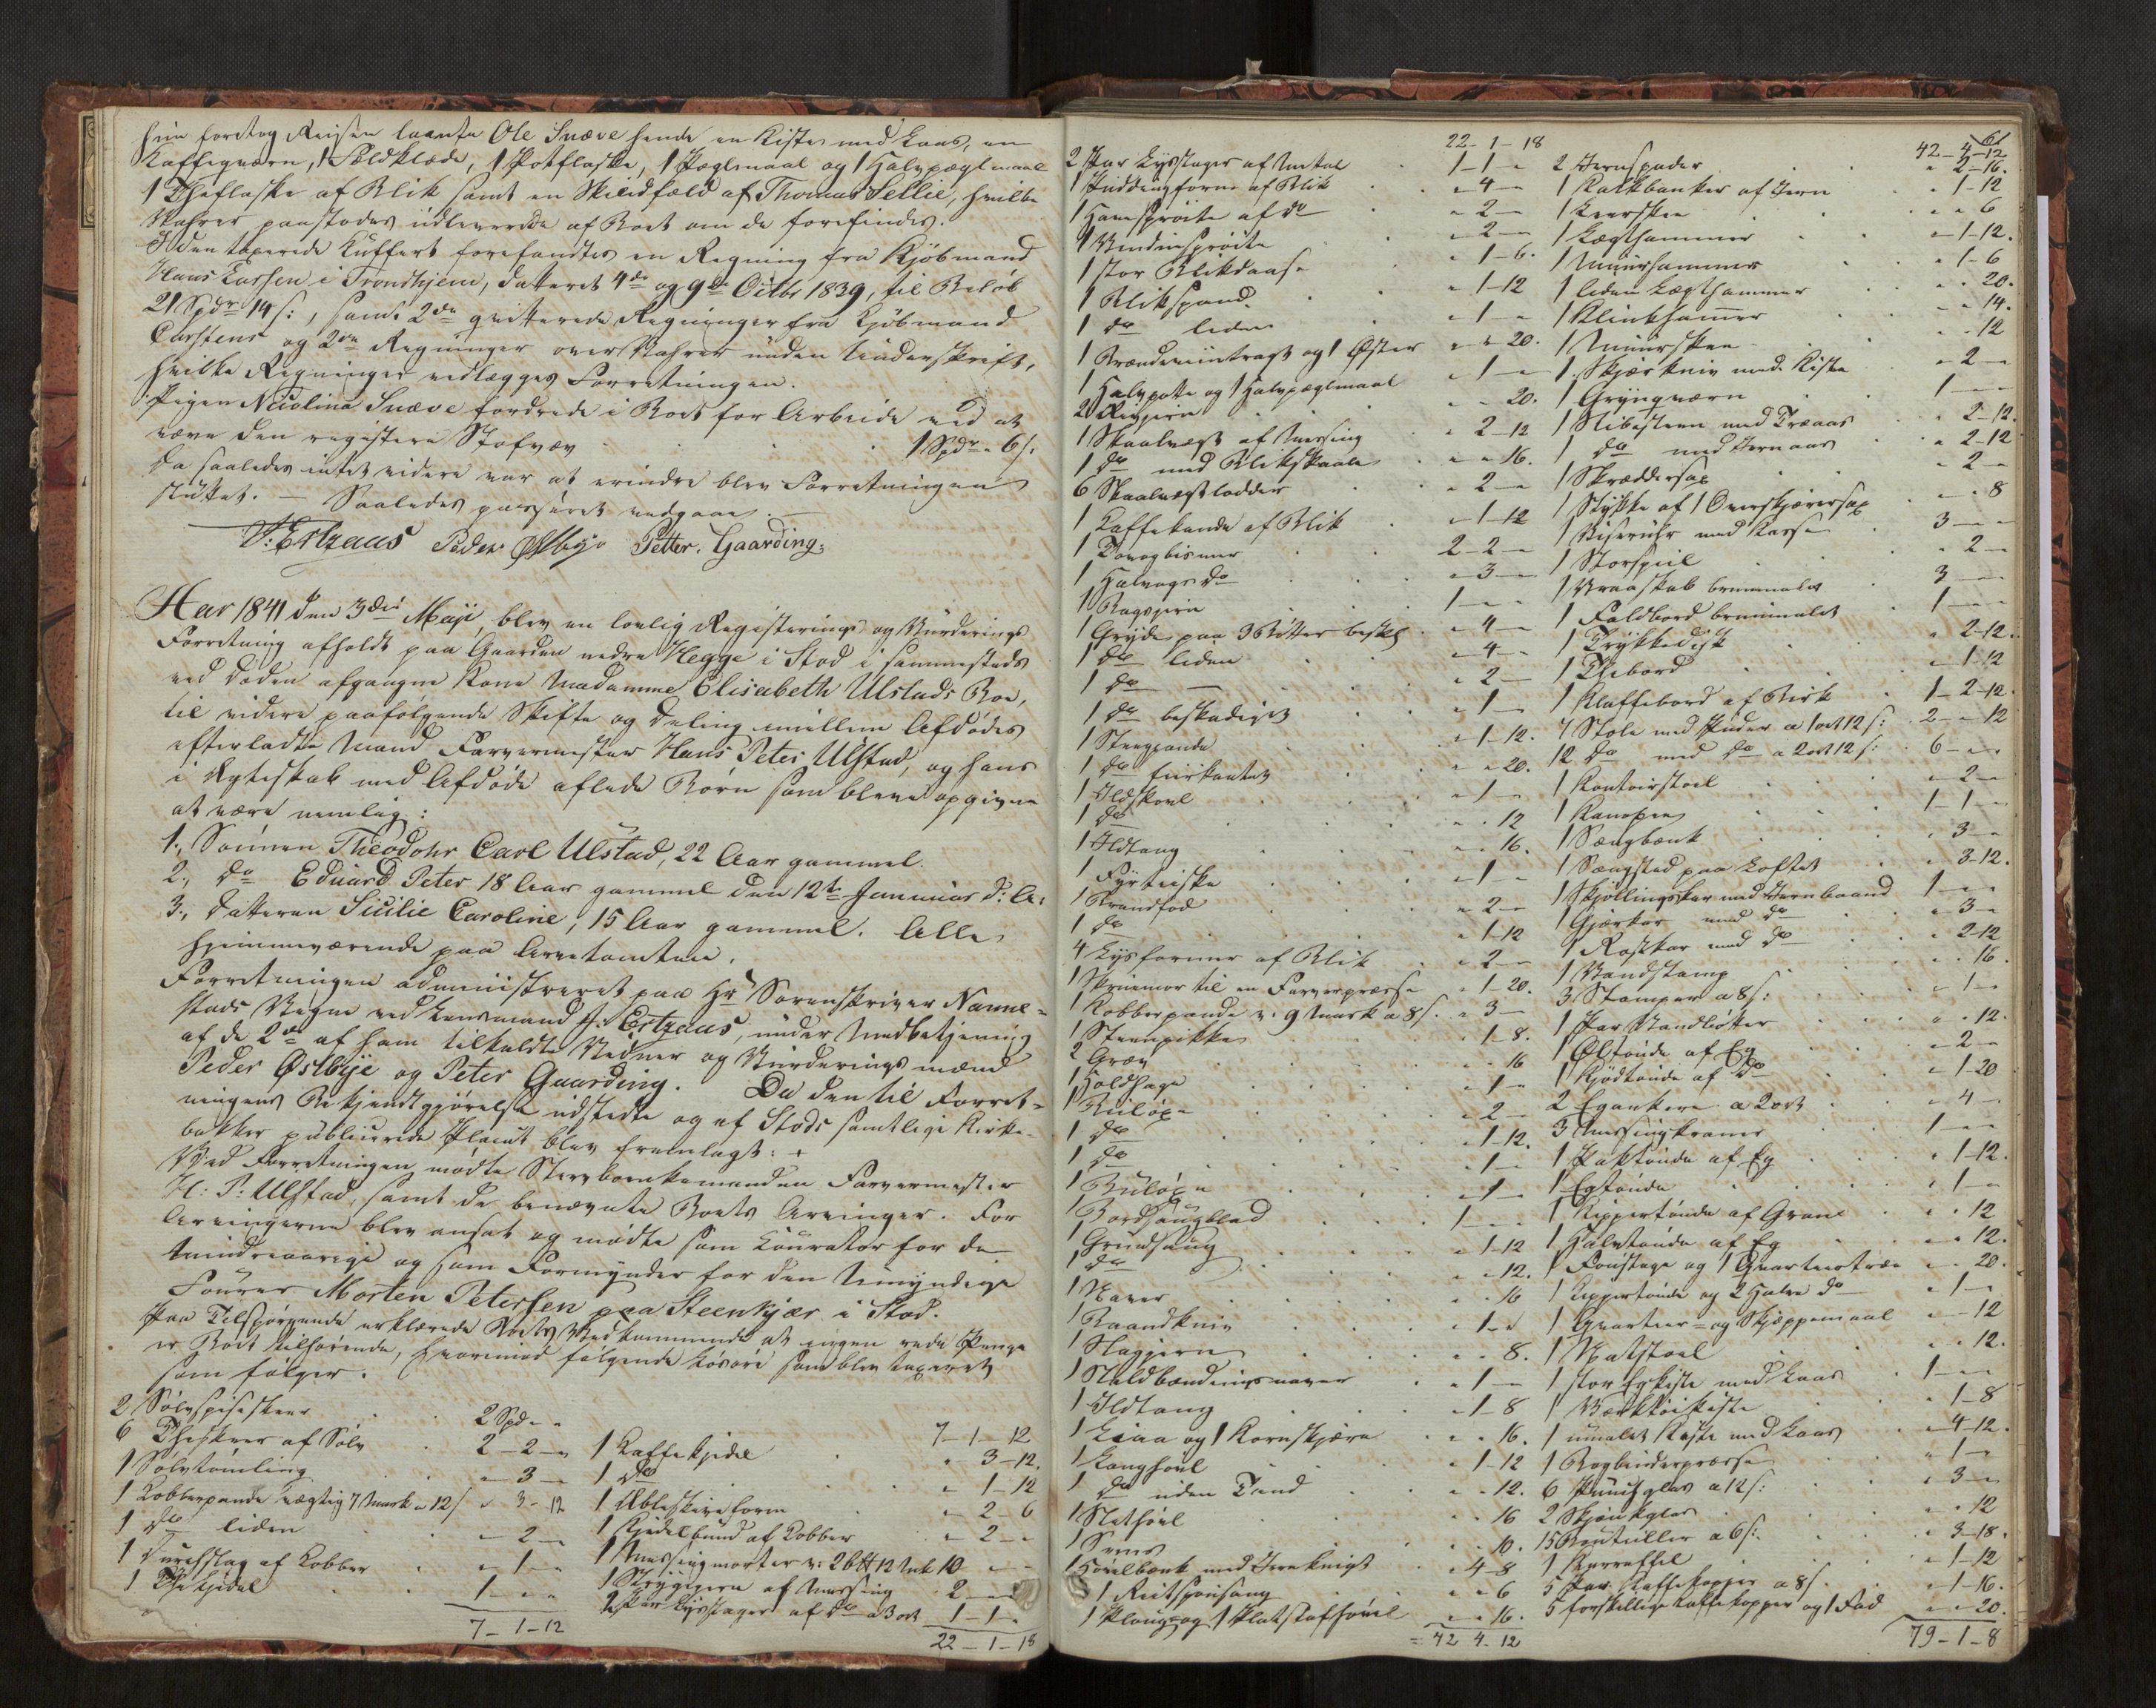 hun foretog Reisen laante Ole Snæve hende en Kiste med Laas, en
Kaffeqværn, 1 Potflaske, 1 Pæglmaal og 1 Halvpæglmaal
1 Theflaske af Blik samt en Skindfæld af Thomas Sellie, hvilke
Vahrer paastodes udleverede af Boet om de forefindes.
I den taxerede Kuffert forefandtes en Regning fra Kjøbmand
Hans Larsen i Trondhjem, datteret 4de og 9de Octbr 1839, til Beløb
21 Spdr 14 s:, samt 2de qvitterede Regninger fra Kjøbmand
Carstens og 2de Regninger over Vahrer uden Underskrift,
hvilke Regninger vedlægges Forretningen.
Pigen Nicolina Snæve fordrede i Boet for Arbeide ved at
væve den registerte Stofvæv 1 Spdr - 6 s.
Da saaledes intet videre var at erindre blev Forretningen
sluttet. – Saaledes passeret vedgaaes. –
Ertzaas Peder Østbye Petter Gaarding
Aar 1841 den 3die Maji blev en lovlig Registerings og Vurderings
Forretning afholdt paa Gaarden nedre Hegge i Stod i sammesteds
ved Døden afgangne Kone Madamme Elisabeth Ulstads Boe,
til videre paafølgende Skifte og Deling imellem Afdødes
efterladte Mand Farvermester Hans Peter Ulstad, og hans
i Ægteskab med Afdøde aflede Børn som bleve opgivne
at være nemlig:
1., Sønnen Theodohr Carl Ulstad, 22 Aar gammel.
2., do Eduard Peter 18 Aar gammel den 12te Januar d: A:
3., Datteren Sicilie Caroline, 15 Aar gammel. Alle
hjemmeværende paa Arvetomten.
Forretningen administreret paa Hr Sorenskriver Nanne-
stads Vegne ved Lensmand Ertzaas, under Medbetjening
af de 2de af ham tilkaldte Vidner og Vurderingsmænd
Peder Østbye og Peter Gaarding. Da den til Forret-
ningens Bekjendtgjørelse udstedte og af Stods samtlige Kirke-
bakker publicerede Placat blev fremlagt: +
Ved Forretningen mødte Stervboenkemanden Farvermester
H: P: Ulstad, samt de benævnte Boets Arvinger. For
Arvingerne blev ansat og mødte som Courator for de
Mindreaarige og som Formynder for den Umyndige
Sourer Morten Petersen paa Steenkjær i Stod.
Paa Tilspørgende erklærede Boets Vedkommende at ingen rede Penge
er Boet tilhørende, hvorimod følgende Løsøre som blev taxeret
som følger.
2 Sølvspiseskeer 2 Spd - -
6 Theskeer af Sølv 2 - 2 -
1 Sølvtømling - 3 -
1 Kobberpande vægtig 7 Mark a 12 s - 3 - 12
1 do liden - 2 -
1 Durchslag af Kobber - 1 -
1 Thekjedel 1 - -
7 - 1 - 12
7 - 1 - 12
1 Kaffekjedel - 3 - 12.
1 do - 1 - 12
1 Ableskiveform - 2 - 6
1 Kjedelbund af Kobber - 2 -
1 Messingmorter v: 2 Bt 12 Mk 10 - -
1 Strygejern af Messing 2 - -
2 Par Lysestager af do a 3 ort 1 - 1 -
22 - 1 - 18
22 - 1 - 18
2 Par Lysstager af Metal 1 - 1 -
1 Puddingform af Blik - 4 -
1 Havesprøite af do - 2 -
1 Vinduesprøite - 2 -
1 stor Blikdaase - 1 - 6.
1 Blikspand - 1 - 12
1 do liden - 1 -
1 Brændeviintragt og 1 Øster - - 20.
1 Halvpotte og 1 Halvpæglmaal - 1 -
2 Rivjern - - 20.
1 Skaalvægt af Messing - 2 - 12
1 do med Blikskaale - - 16.
6 Skaalvægtlodder - 2 -
1 Kaffekande af Blik - 1 - 12
1 Tovogbismer 2 - 2 -
1 Halvvogs do - 3 -
1 Bagejern 1 - -
1 Gryde paa 3 Bøtter beskg - 4 -
1 do liden - 4 -
1 do – - 2 -
1 do beskadiget - 1 -
1 Steegpande - 1 - 12.
1 do fiirkantet - - 20.
1 Ildskovl - 1 -
1 do - - 12
1 Ildtang - - 16.
1 Fyrtriske - 1 -
1 Brandfod - 2 -
1 do - 1 - 12
4 Lysformer af Blik - 2 -
1 Skruemor til en Farverpresse - 1 - 20.
1 Kobberpande v. 9 Mark a 8 s. - 3 -
1 Steenpikke - 1 - 8.
2 Græv - - 16
1 Holdhage - 1 -
1 Buløxe - 2 -
1 do - 1 - 12.
1 do - 1 -
1 Buløxe - 1 -
1 Bordsaugblad 1 - -
1 Grindsaug - 1 - 12
1 do - - 12.
1 Naver - - 16
1 Baandkniv - 1 -
1 Slagjern - - 8.
1 Staldbændingsnaver - 1 -
1 Ildtang - 1 - 8
1 Liaa og 1 Kornskjære - - 16.
1 Langhøvl - 1 - 12
1 do uden Tand - - 12.
1 Slethøvl - - 16
1 Svins - - 10.
1 Høvelbænk med Jernknegt - 4 - 8
1 Reitspønsang - - 6
1 Plaug og 1 Platstofhøvel - - 16.
= 42 - 4 - 12
61
42 - 4 - 12
2 Jernspader - 2 - 16.
1 Kalkbanker af Jern - 1 - 12
1 Leerskee - - 6
1 Lægthammer - 1 - 12.
1 Muurhammer - 1 - 6
1 liden Lægthammer - - 20.
1 Klinkhammer - - 14.
1 Muurskee - - 12
1 Skjærkniv med Kiste - 2 -
1 Grynqværn 1 - -
1 Slibesteen med Træaas - 2 - 12.
1 do med Jernaas - 2 - 12
1 Skræddersax - 2 -
1 Stykke af 1 Overskjæresax - - 8
1 Viseruhr med Kasse 3 - -
1 Storspiil - 2 -
1 Vraaskab bruunmalet 3 - -
1 Foldbord bruunmalet 1 - -
1 Trykkedisk - 2 - 12.
1 Thebord - 1 - 12
1 Klaffebord af Birk 1 - 2 - 12.
7 Stole med Puder a 1 ort 12 s: 2 - - 12
12 do med do a 2 ort 12 s: 6 - -
1 Kontoirstoel - 2 -
1 Kanapee 1 - 1 -
1 Sængbænk - 3 -
1 Sængsted paa Loftet - 3 - 12.
1 Skjøllingskar med Jernbaand 1 - -
1 Gjærkar med do - 3 -
1 Rostkar med do - 2 - 12
1 Vandstamp - - 16.
3 Stamper a 8 s: - 1 -
1 Par Vandbøtter - - 12.
1 Øltønde af Eg - 2 -
1 Kjødtønde af do - 1 - 20
2 Egankere a 2 ort - 4 -
3 Messingkraner 1 - -
1 Paktønde af Eg - 1 - 12.
1 Egtønde - 1 -
1 Kippertønde af Gran - - 12
1 Halvtønde af Eg - - 12.
1 Foustage og 1 Qvarteertræe - - 20.
1 Kippertønde og 2 Halve do - 1 -
1 Qvarteer- og Skjæppemaal - - 12
1 Natstoel - - 12.
1 stor Egkiste med Laas 1 - -
1 Værktøikiste - 1 - 8
1 umalet Kiste med Laas - 4 - 12.
1 Bogbinderpresse - 1 -
6 Puntsglas a 12 s: - 3 -
2 Skjænkglas - - 12
15 Bouteiller a 6 s: - 3 - 18.
1 Karaffel - 1 - 12
5 Par Kaffekopper a 8 s. - 1 - 16.
5 forskillige Kaffekopper og 1 Fad - - 20.
79 - 1 - 8